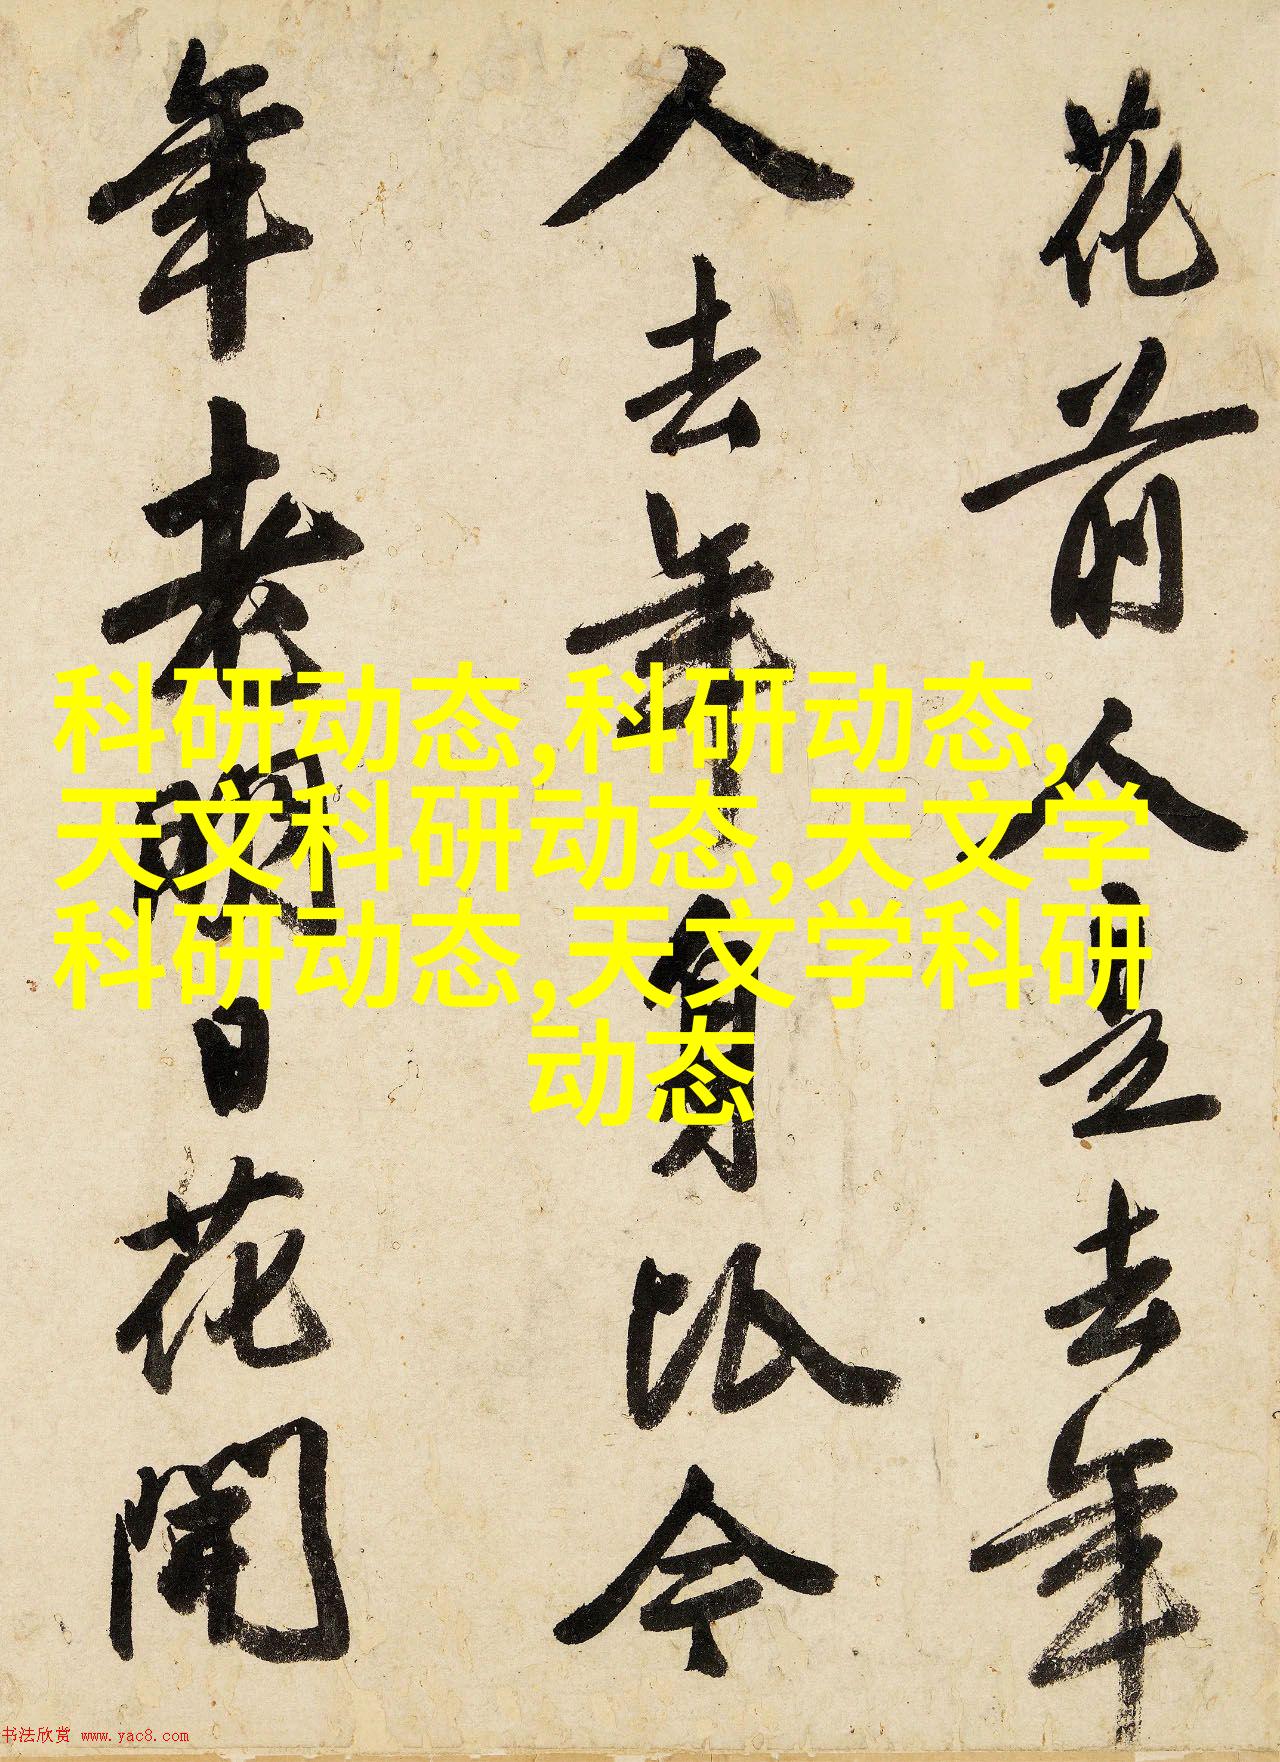 花前人是去年
人去年身比今
年老日花開
科研动态,科研动态,
天文科研动态,天文学
科研动态,天文学科研
动态
书法欣赏 www.yac8.com